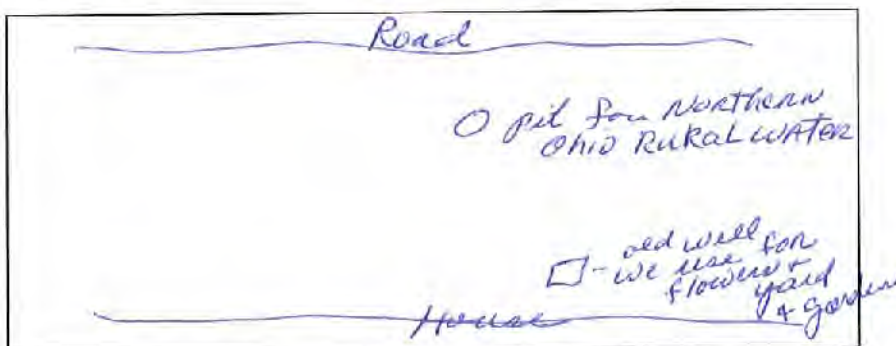 Road
O pit for Northern
Ohio Rural Water
□ - old well
we use for
flowers +
yard
+ garden
House